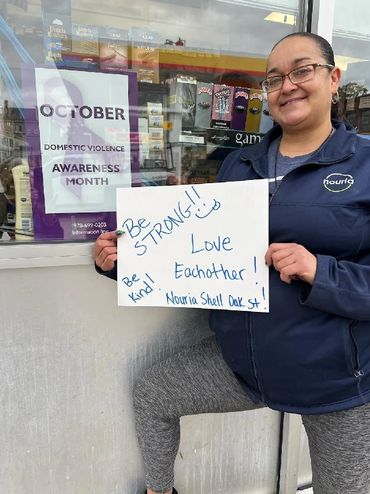 OCTOBER
DOMESTIC VIOLENCE
AWARENESS
MONTH
game
nouria
Be
STRONG!!
Love
Eachother!
Be
Kind!
Nouria Shell Oak St!